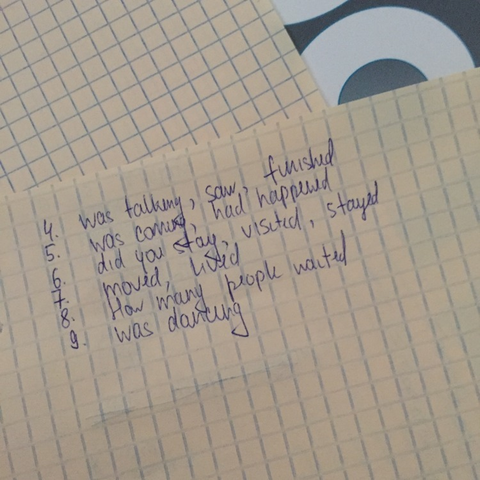 4. was talking, saw, finished
5. was coming, had happened
6. did you stay, visited, stayed
7. moved, lived
8. How many people waited
9. was dancing